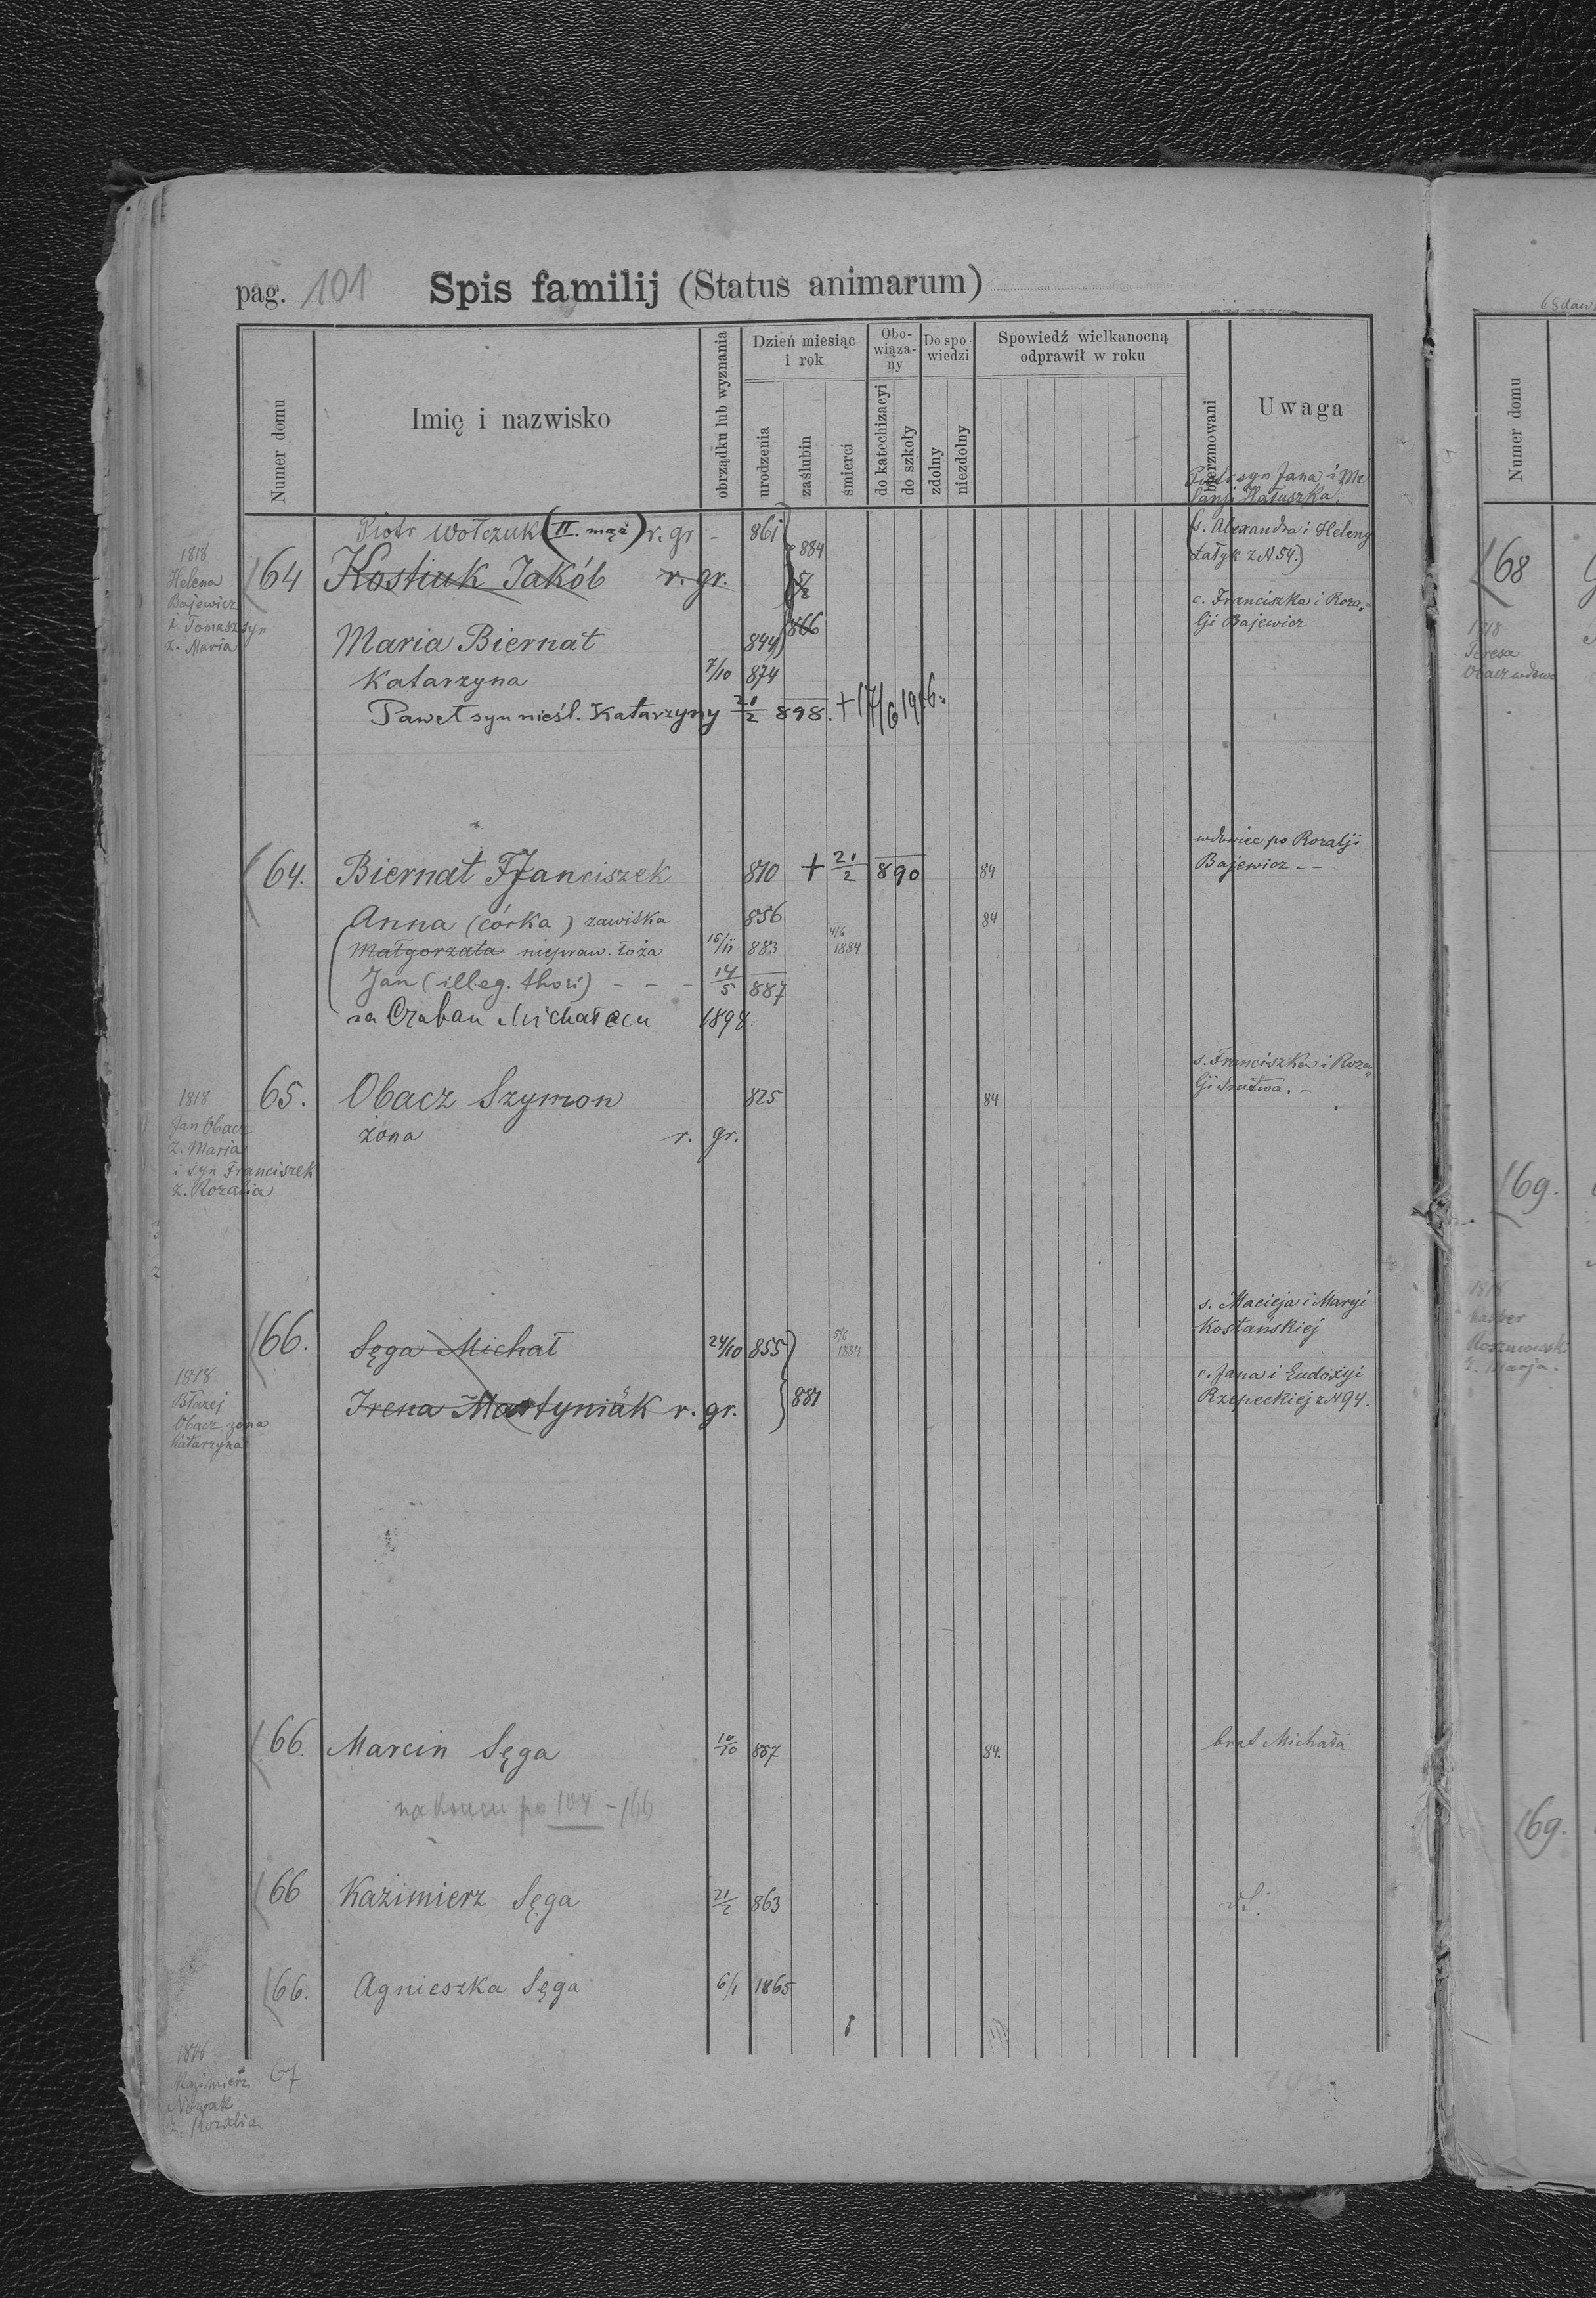 pag. 101 Spis familij (Status animarum)
Numer domu
Imię i nazwisko
obrządku lub wyznania
Dzień miesiąc i rok
urodzenia
zaślubin
śmierci
Obo-
wiąza-
ny
do katechizacyi
do szkoły
Do spo-
wiedzi
zdolny
niezdolny
Spowiedź wielkanocną
odprawił w roku
bierzmowani
Uwaga
Piotr syn Jana i Me
lanji Hałuszka.
Piotr Wołczuk (II. mąż) r. gr - 861 884
1818
Helena
Bajewicz
Tomasz syn
ż. Maria
64 Kostiuk Jakób r. gr.
(s. Alexandra i Heleny
Łatyk z N 54.)
866
Maria Biernat 844
c. Franciszka i Roza-
lji Bajewicz
Katarzyna 7/10 874
Paweł syn nieśl. Katarzyny 21/2 898. + 17/6 1916.
64. Biernat Franciszek 810 + 21/2 890 84
wdowiec po Rozalji
Bajewicz. -
Anna (córka) zawiska 856 84
Małgorzata niepraw. łoża 15/11 883 4/6 1884
Jan (illeg. thori) - - - 14/5 887
za Czaban Michałem 1898
65. Obacz Szymon 825 84
s. Franciszka i Roza-
lji Smetwa. -
żona r. gr.
1818
Jan Obacz
ż. Marja
i syn Franciszek
ż. Rozalia
66. Sęga Michał 24/10 855 5/6 1884
s. Macieja i Maryi
Kostańskiej
881
Irena Martyniak r. gr.
c. Jana i Eudoxyi
Rzepeckiej z N 94.
1818
Błażej
Obacz żona
Katarzyna
66. Marcin Sęga 10/10 857 84. brat Michała
na końcu po 104 - 166
66 Kazimierz Sęga 21/2 863
66. Agnieszka Sęga 6/1 1865
67
Kazimierz
Nowak
ż. Rozalia
68 daw
Numer domu
68
1818
Teresa
Obacz wdowa
69.
1818
Roszniowski
ż. Marja.
69.